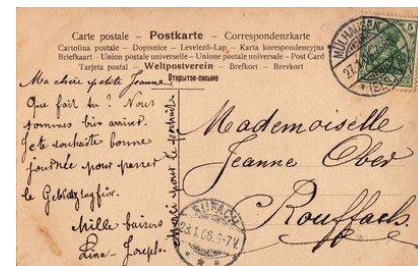 Carte postale – Postkarte – Correspondenzkarte
Cartolina postale – Dopisnice – Levelező-Lap – Karta korespondencyjna
Briefkaart – Union postale universelle – Unione postale universale – Post Card
Tarjeta postal – Weltpostverein – Brefkort – Brevkort
Открытое письмо
Ma chère petite Jeanne
Que fait tu? Nous
sommes bien arrivé.
Je te souhaite bonne
journée pour passer
le
Mille baisers
Lina Joseph.
Merci pour le portrait
Mademoiselle
Jeanne Ober
Rouffach.
MÜLHAUSEN
27.
(ELS)
5
RUFACH
28.1.06. 6-7V.